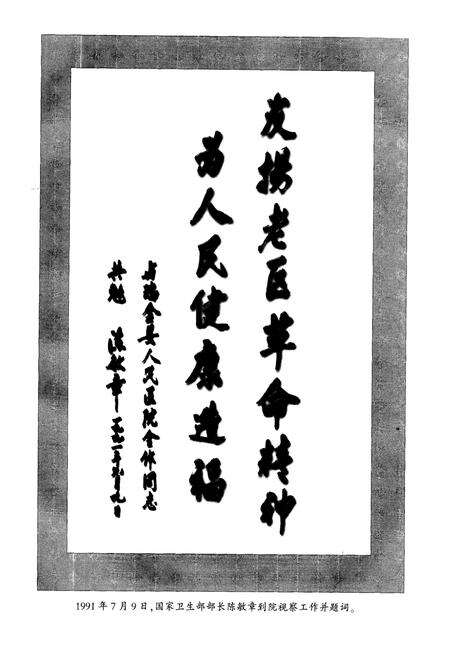 发扬老区革命精神
为人民健康造福
与瑞金县人民医院全体同志
共勉 陈敏章 一九九一年七月九日
1991年7月9日,国家卫生部部长陈敏章到院视察工作并题词。